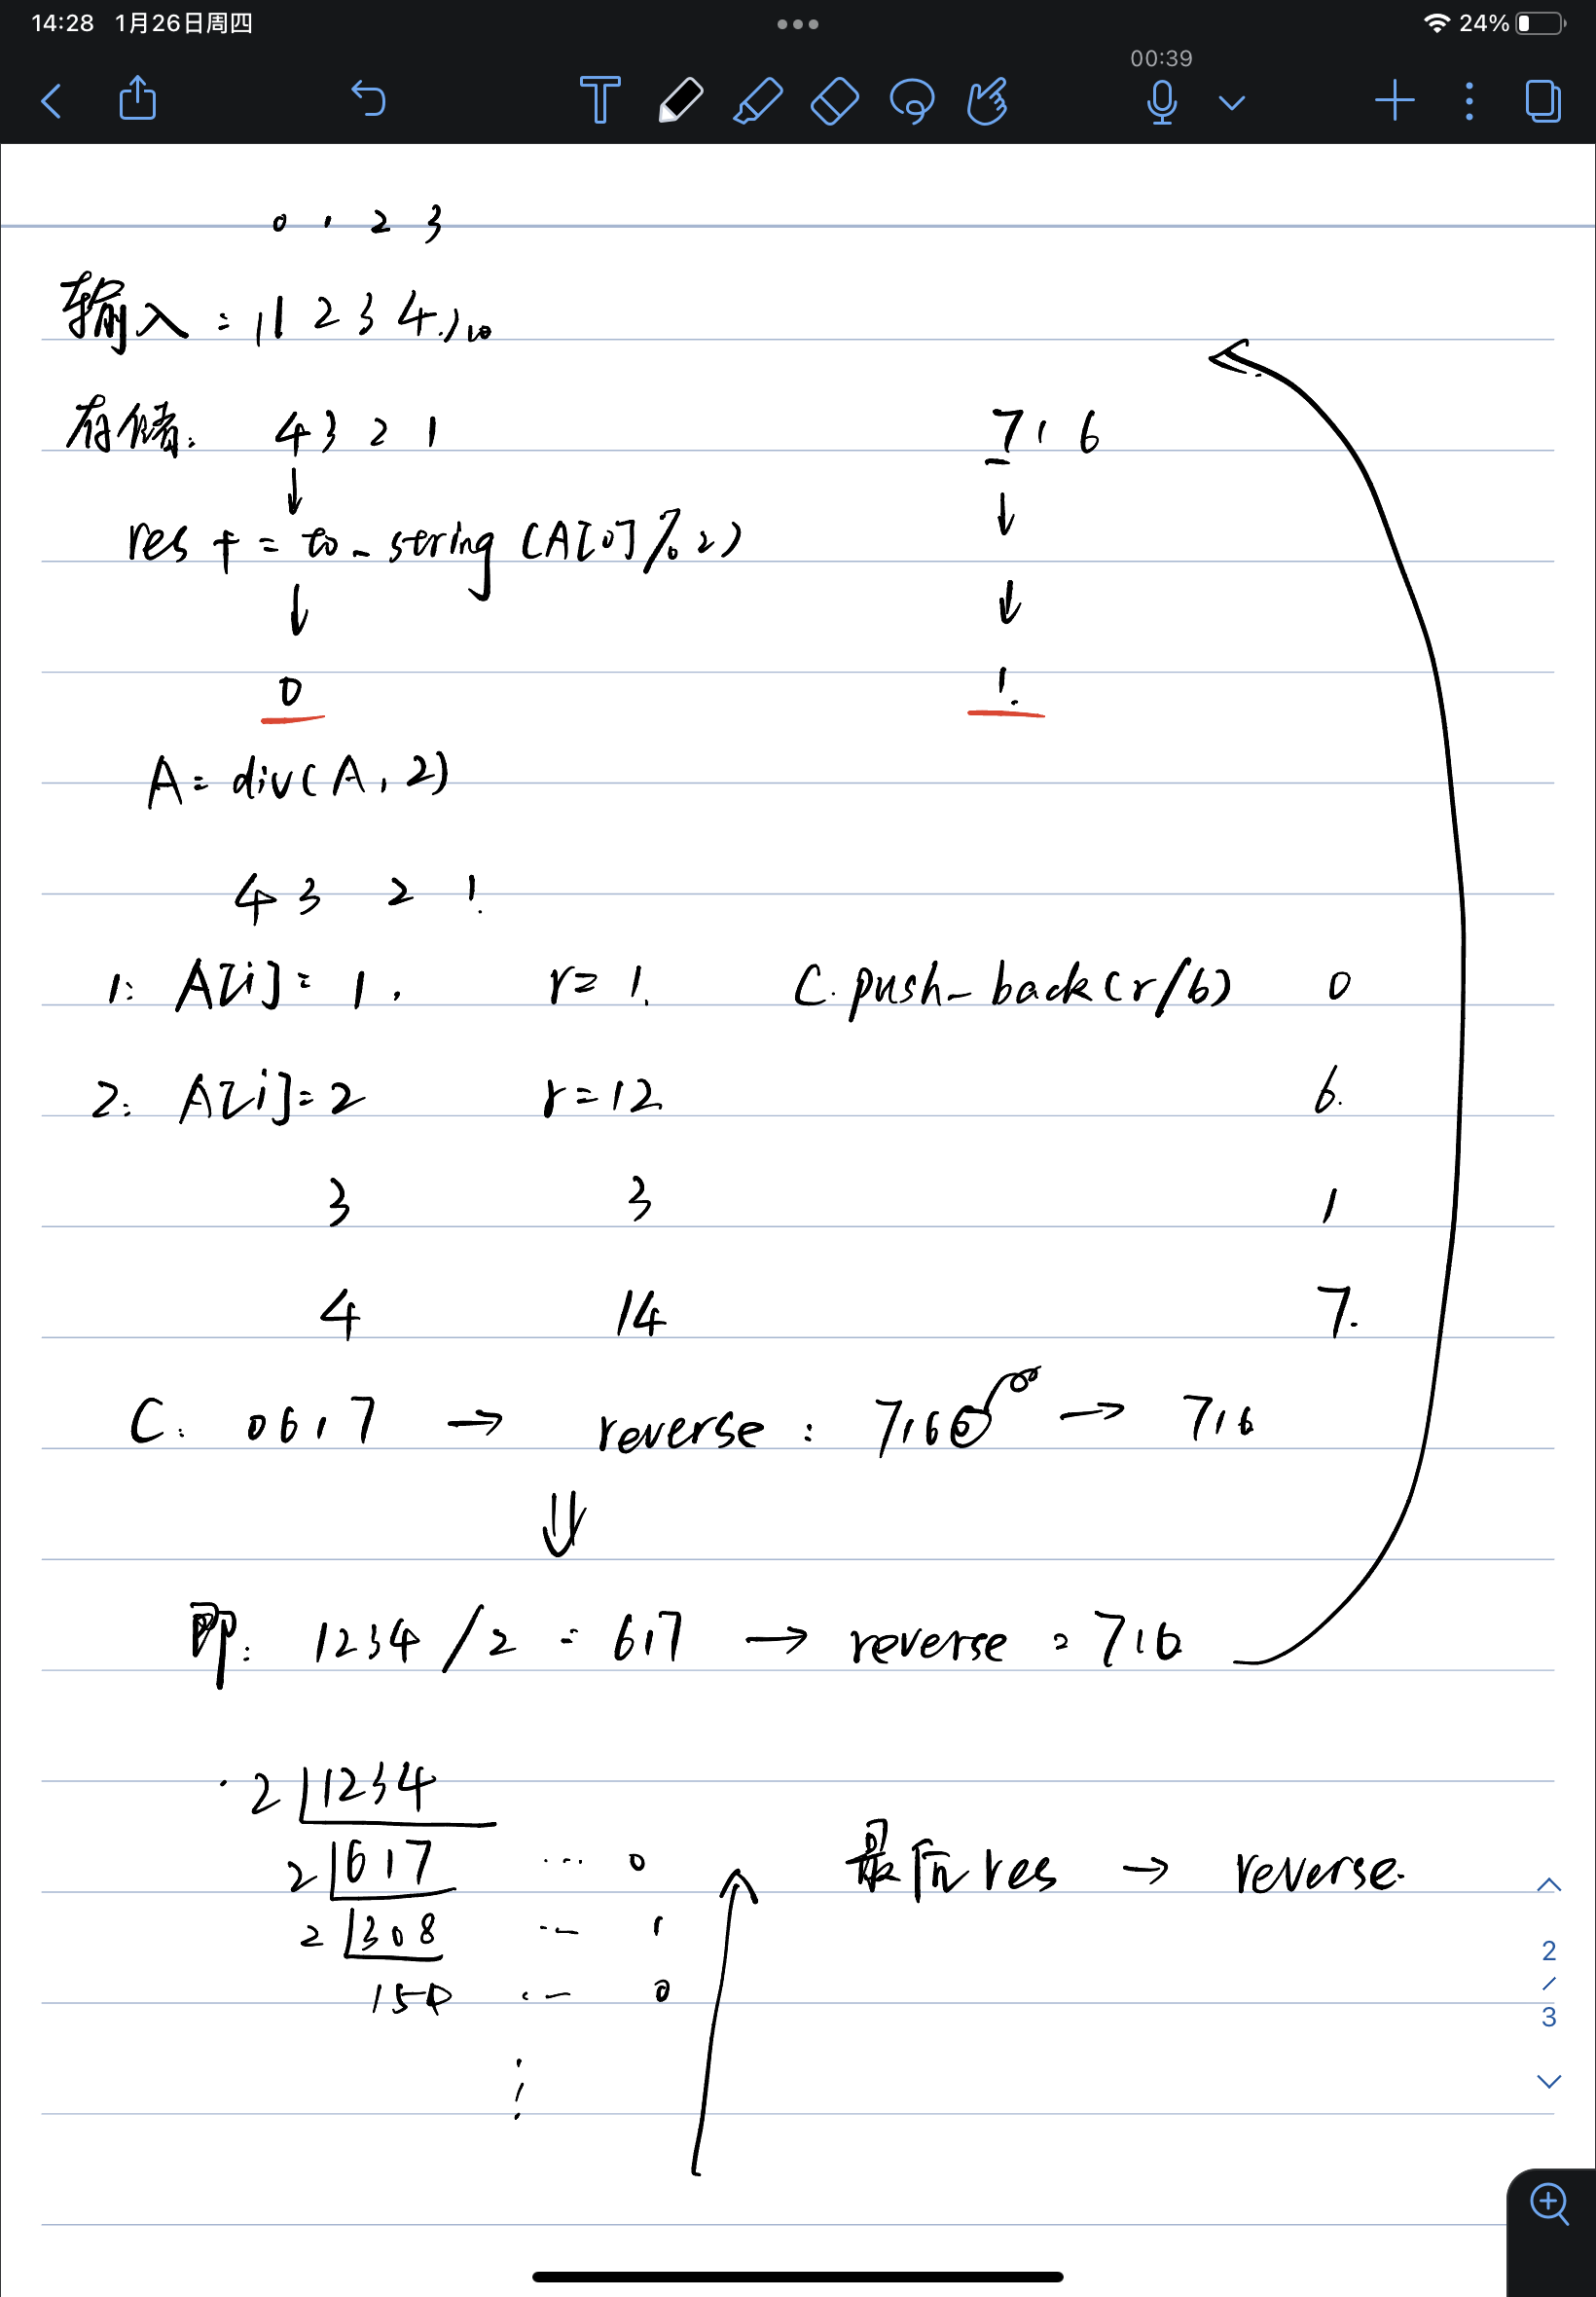 14:28 1月26日周四
24%
00:39
0 1 2 3
输入: (1 2 3 4)10
存储: 4 3 2 1 7 1 6
↓ ↓
res += to_string(A[0]%2)
↓ ↓
0 1
A = div(A, 2)
4 3 2 1
1: A[i]=1, r=1. C.push_back(r/b) 0
2: A[i]=2 r=12 6
3 3 1
4 14 7
C: 0617 → reverse: 7160 → 716
⇓
即: 1234/2 = 617 → reverse = 716
2 1234
2 617 ... 0 最后res → reverse.
2 308 ... 1
154 ... 0
⋮
2
/
3